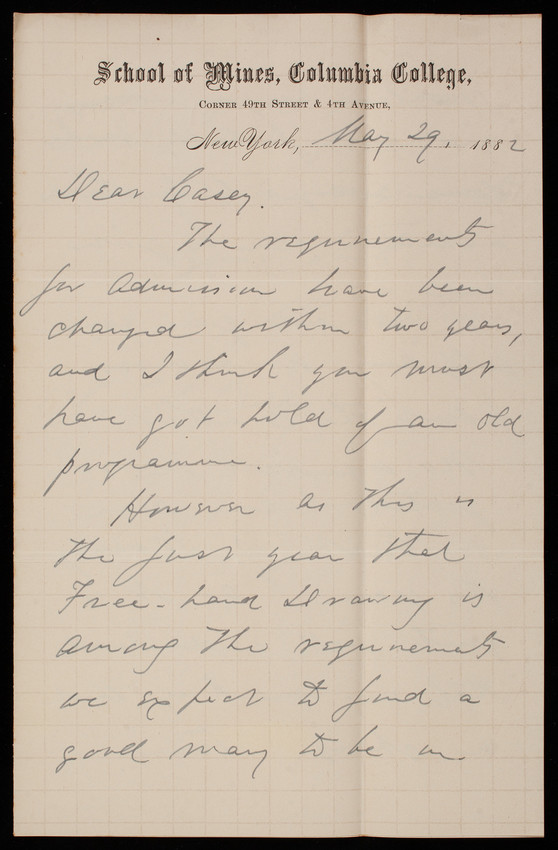 School of Mines, Columbia College,
Corner 49th Street & 4th Avenue,
New York, May 29, 1882
Dear Casey.
The requirements
for admission have been
changed within two years,
and I think you must
have got hold of an old
programme.
However as this is
the first year that
Free-hand Drawing is
among the requirements
we expect to find a
good many to be un-